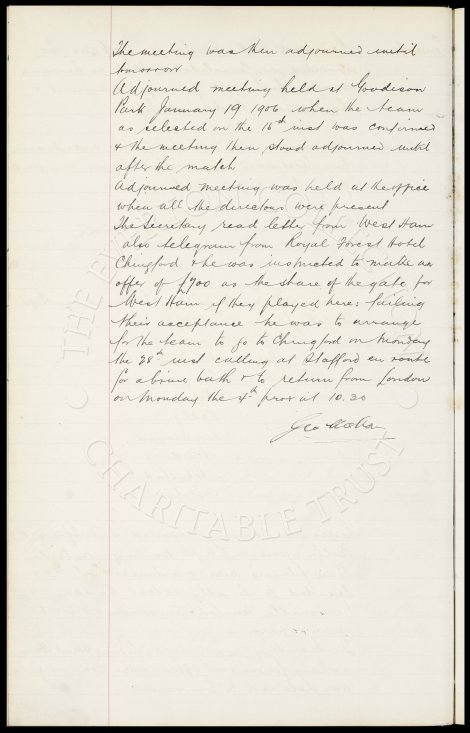 The meeting was then adjourned until
tomorrow
Adjourned meeting held at Goodison
Park January 19 1906 when the team
as selected on the 15th inst was confirmed
& the meeting then stood adjourned until
after the match
Adjourned meeting was held at the office
when all the directors were present
The Secretary read letter from West Ham
also telegram from Royal Forest Hotel
Chingford & he was instructed to make an
offer of £700 as the share of the gate for
West Ham if they played here: failing
their acceptance he was to arrange
for the team to go to Chingford on Monday
the 28th inst calling at Stafford en route
for a brine bath & to return from London
on Monday the 4th prox at 10.30
Geo Mahon
THE EVERTON
CHARITABLE TRUST